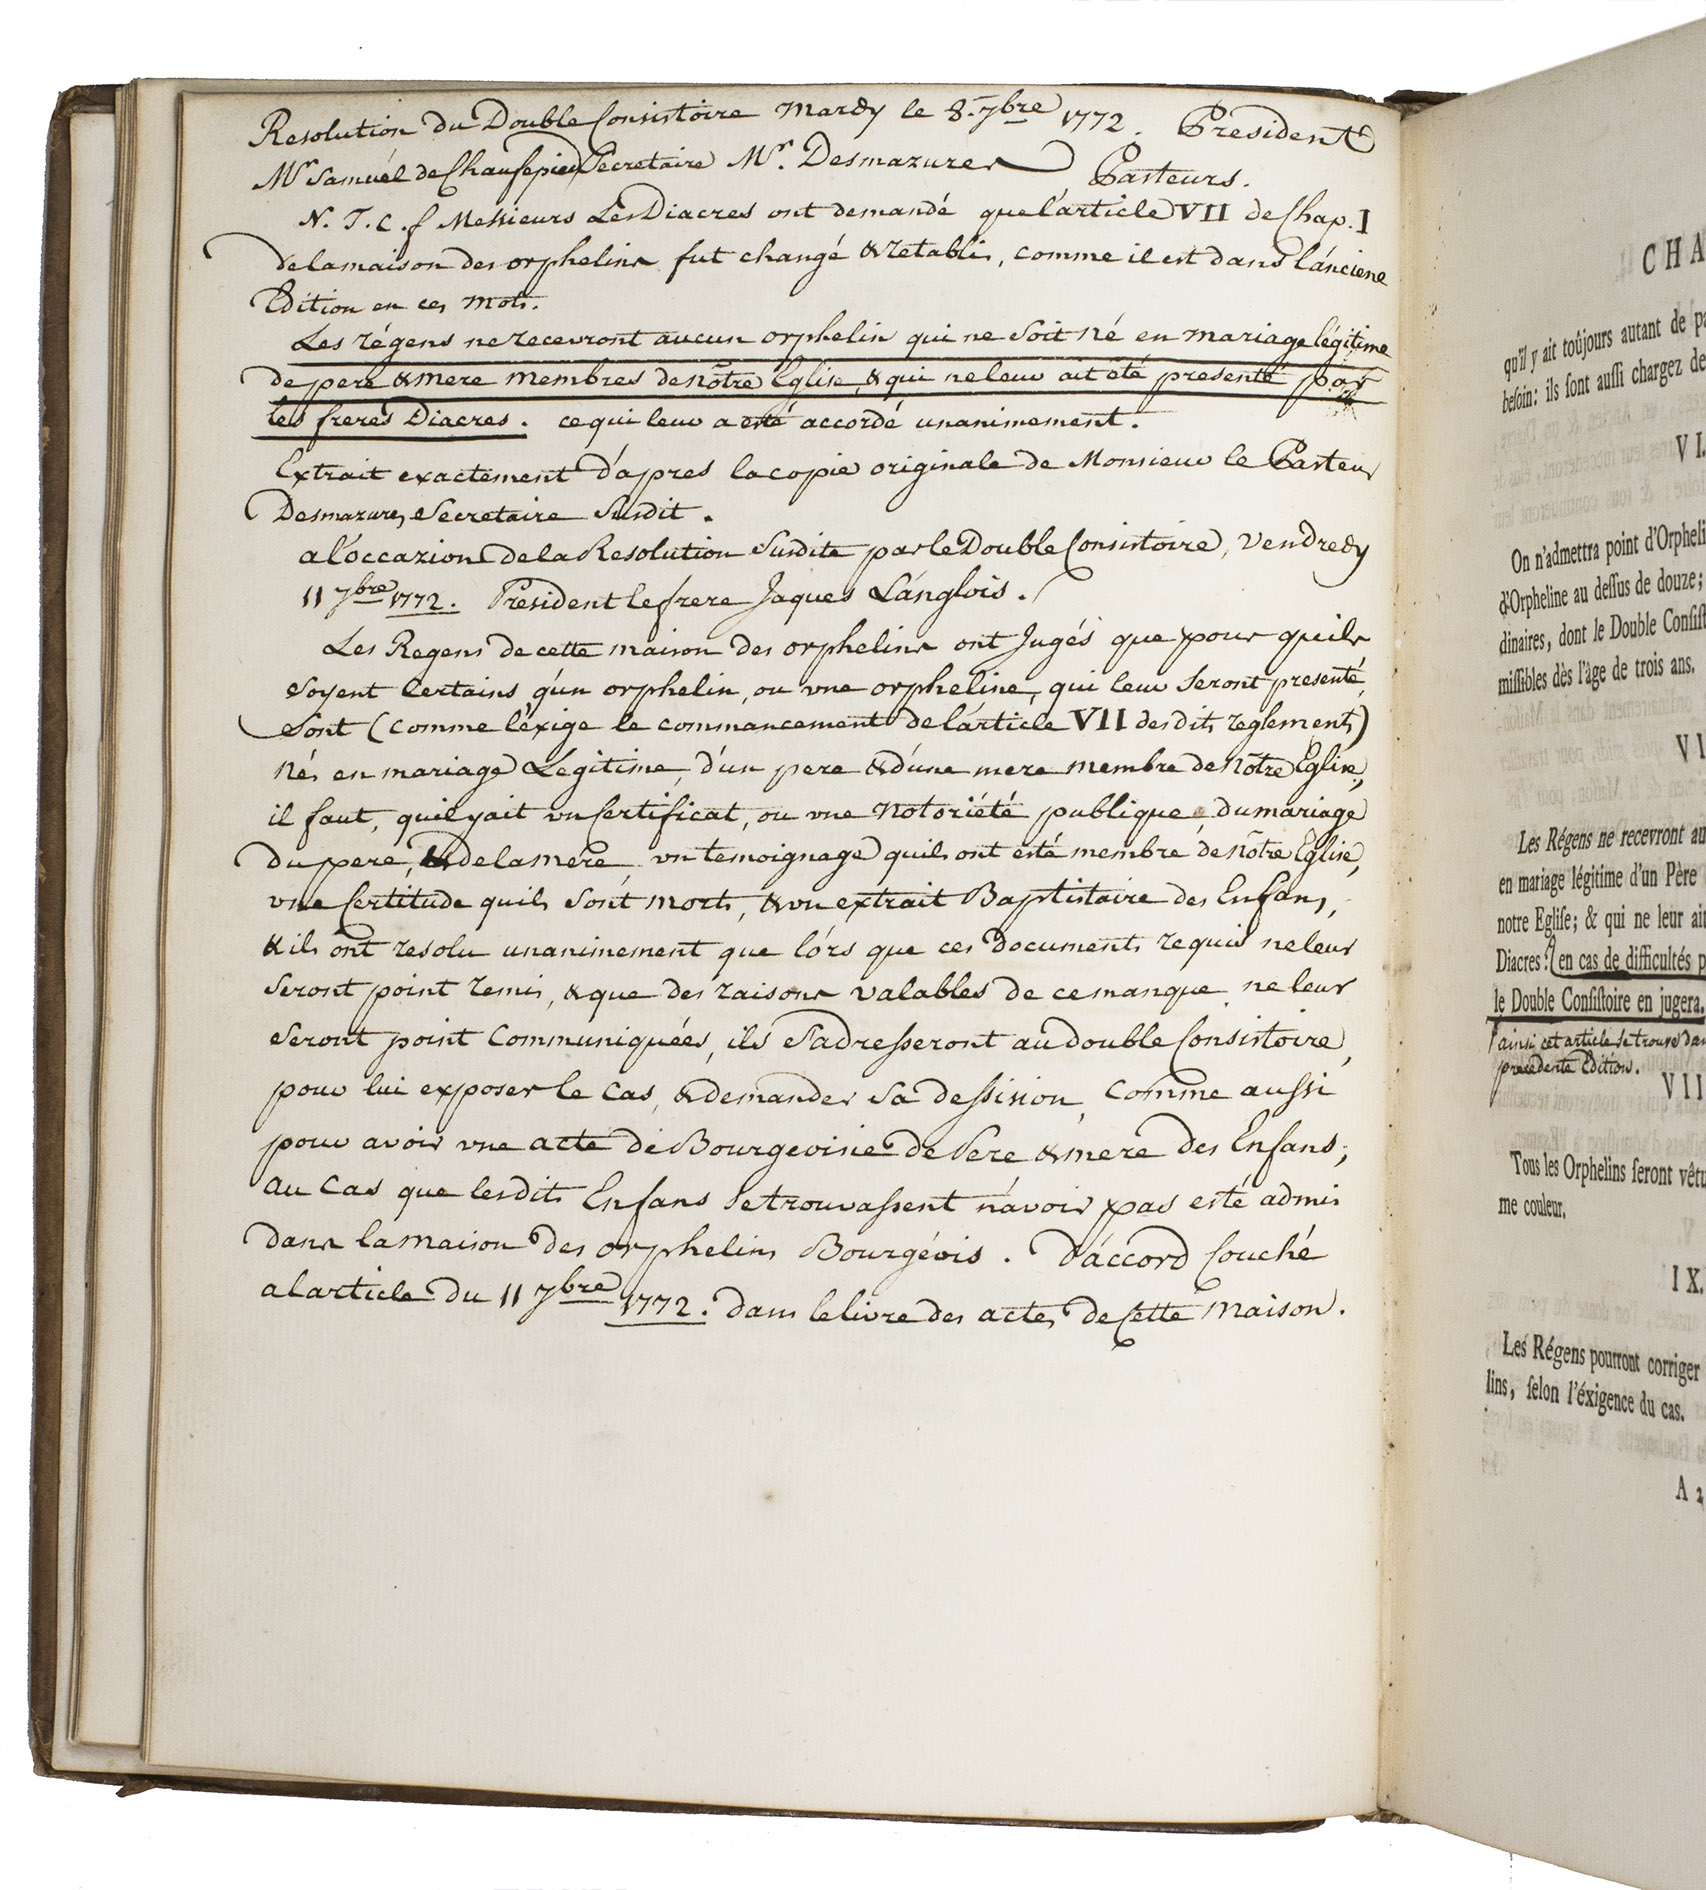 Resolution du Double Consistoire Mardy le 8. 7bre 1772. President
Mr Samuél de Chaufepied Secretaire Mr. Desmazures Pasteurs.
N. T. C. f Messieurs Les Diacres ont demandé que l'article VII de Chap. I
de la maison des orphelins fut changé & retabli, comme il est dans l'anciene
Edition en ces mots.
Les régens ne recevront aucun orphelin qui ne soit né en mariage légitime
de pere & mere membres de nôtre Eglise, & qui ne leur ait été presenté par
les freres Diacres. ce qui leur a esté accordé unanimement.
Extrait exactement d'apres la copie originale de Monsieur le Pasteur
Desmazures Secretaire Susdit.
a l'occazion de la Resolution Susdite par le Double Consistoire, Vendredy
11 7bre 1772. President le frere Jaques Lánglois.
Les Regens de cette maison des orphelins ont Jugés que pour qu'ils
soyent Certains, q'un orphelin, ou une orpheline, qui leur seront presenté,
sont (comme l'éxige le commancement de l'article VII desdits reglements)
Nés en mariage Legitime, d'un pere & d'une mere membre de nôtre Eglise,
il faut, qu'il y ait un Certificat, ou une Notoriété publique du mariage
du pere, & de la mere, un temoignage qu'ils ont esté membré de nôtre Eglise,
une Certitude qu'ils sont morts, & un extrait Baptistaire des Enfans,
& ils ont resolu unanimement que lórs que ces Documents requis ne leur
seront point remis, & que des raisons valables de ce manque ne leur
seront point Communiquées, ils s'adresseront au double Consistoire,
pour lui exposer le Cas, & demander sa dessision, Comme aussi
pour avoir une acte de Bourgeoisie de Pere & mere des Enfans,
au Cas que lesdits Enfans se trouvassent n'avoir pas esté admis
dans la maison des orphelins Bourgéois. D'áccord Couché
a larticle du 11 7bre 1772. dans le livre des actes de Cette Maison.
CHA
qu'il y ait toûjours autant de pa
besoin: ils sont aussi chargez de
VI.
On n'admettra point d'Orpheli
d'Orpheline au dessus de douze;
dinaires, dont le Double Consist
missibles dès l'âge de trois ans.
VI
Les Régens ne recevront au
en mariage légitime d'un Père
notre Eglise; & qui ne leur ait
Diacres: en cas de difficultés p
le Double Consistoire en jugera.
ainsi cet article se trouve dan
precedente Edition.
VII
Tous les Orphelins seront vêtu
me couleur.
IX.
Les Régens pourront corriger
lins, selon l'éxigence du cas.
A 2